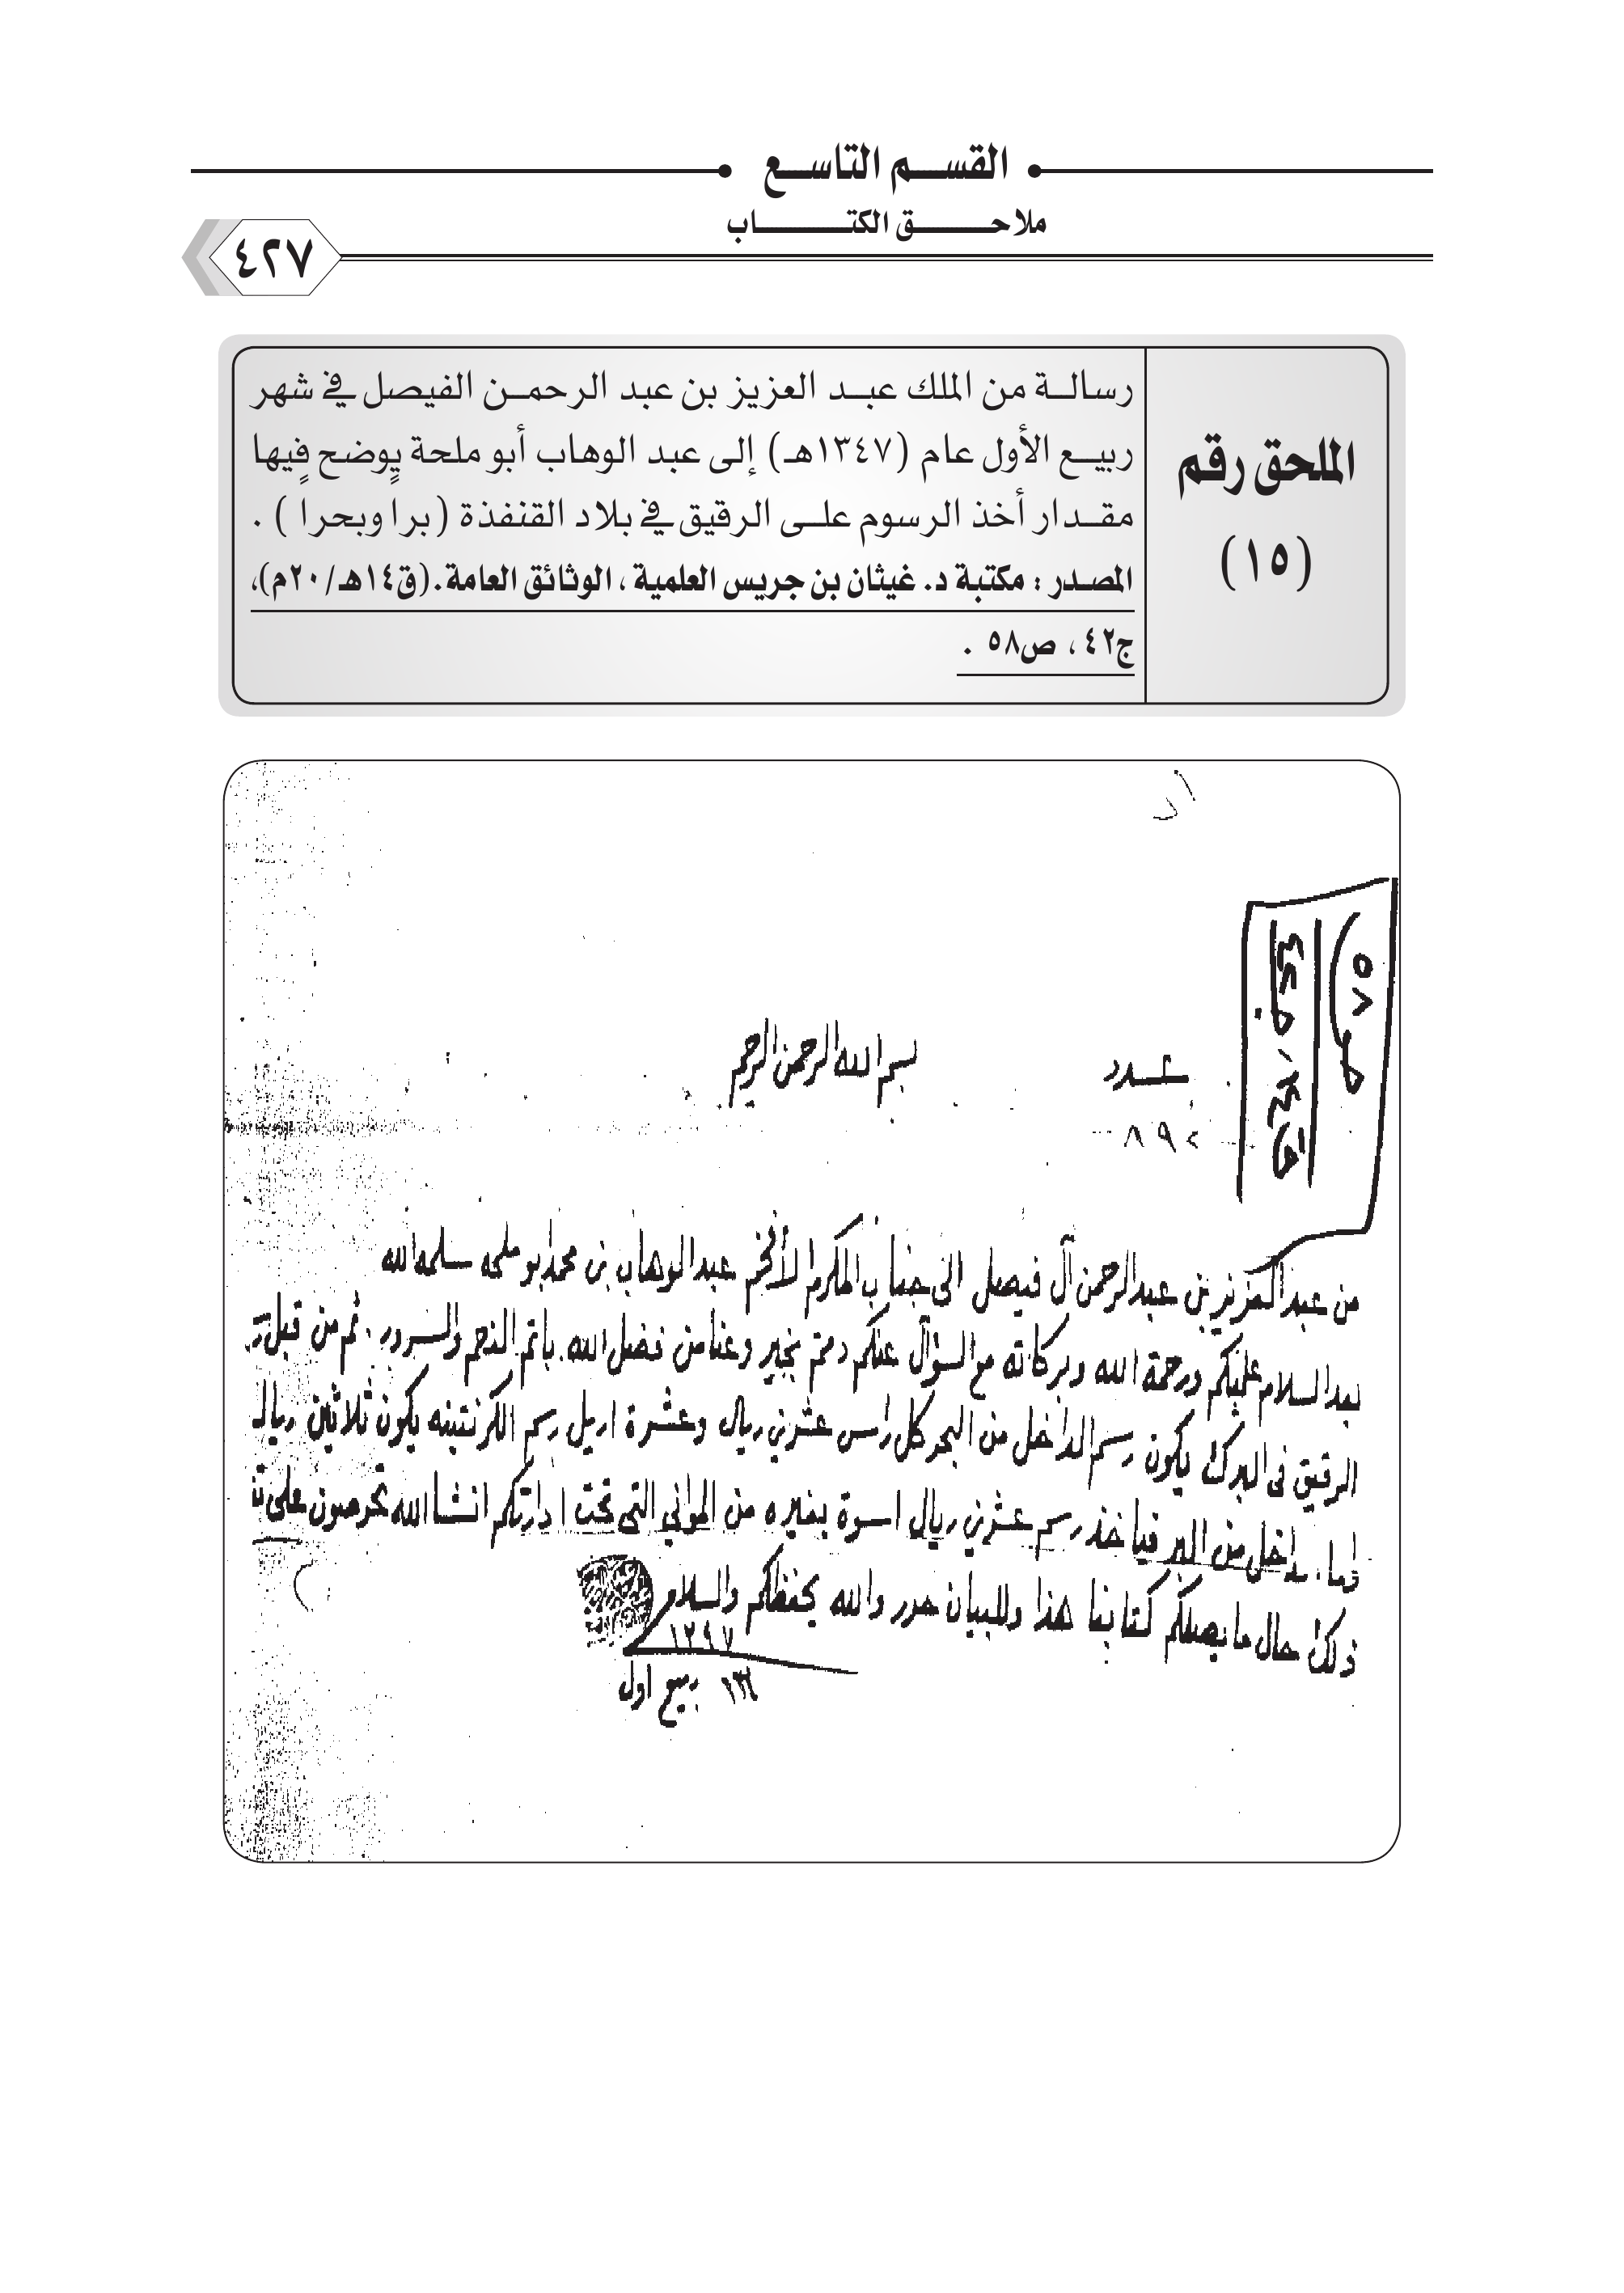 القسم التاسع
ملاحق الكتاب
٤٢٧
الملحق رقم
(١٥)
رسالة من الملك عبد العزيز بن عبد الرحمن الفيصل في شهر
ربيع الأول عام (١٣٤٧هـ) إلى عبد الوهاب أبو ملحة يوضح فيها
مقدار أخذ الرسوم على الرقيق في بلاد القنفذة (برا وبحرا ) .
المصدر : مكتبة د. غيثان بن جريس العلمية ، الوثائق العامة.(ق١٤هـ/٢٠م)،
ج٤٢ ، ص٥٨ .
ص٥٨
بسم الله الرحمن الرحيم
عدد
٨٩٢
من عبد العزيز بن عبد الرحمن آل فيصل الى جناب المكرم الأفخم عبد الوهاب بن محمد بو ملحه سلمه الله
بعد السلام عليكم ورحمة الله وبركاته مع السؤآل عنكم دمتم بخير وعنا من فضل الله باتم النعم والسرور . ثم من قبل
الرقيق فى البرك يكون رسم الداخل من البحر كل رأس عشرين ريال وعشرة اريل رسم الكرنتينه يكون ثلاثين ريال
اما داخل من البر فياخذ رسم عشرين ريال اسوة بغيره من الموانى التى تحت ادارتكم انشاالله تحرصون على
ذلك حال ما يصلكم كتابنا هذا وللبيان حرر والله يحفظكم والسلام
١٢٩٧
ربيع اول